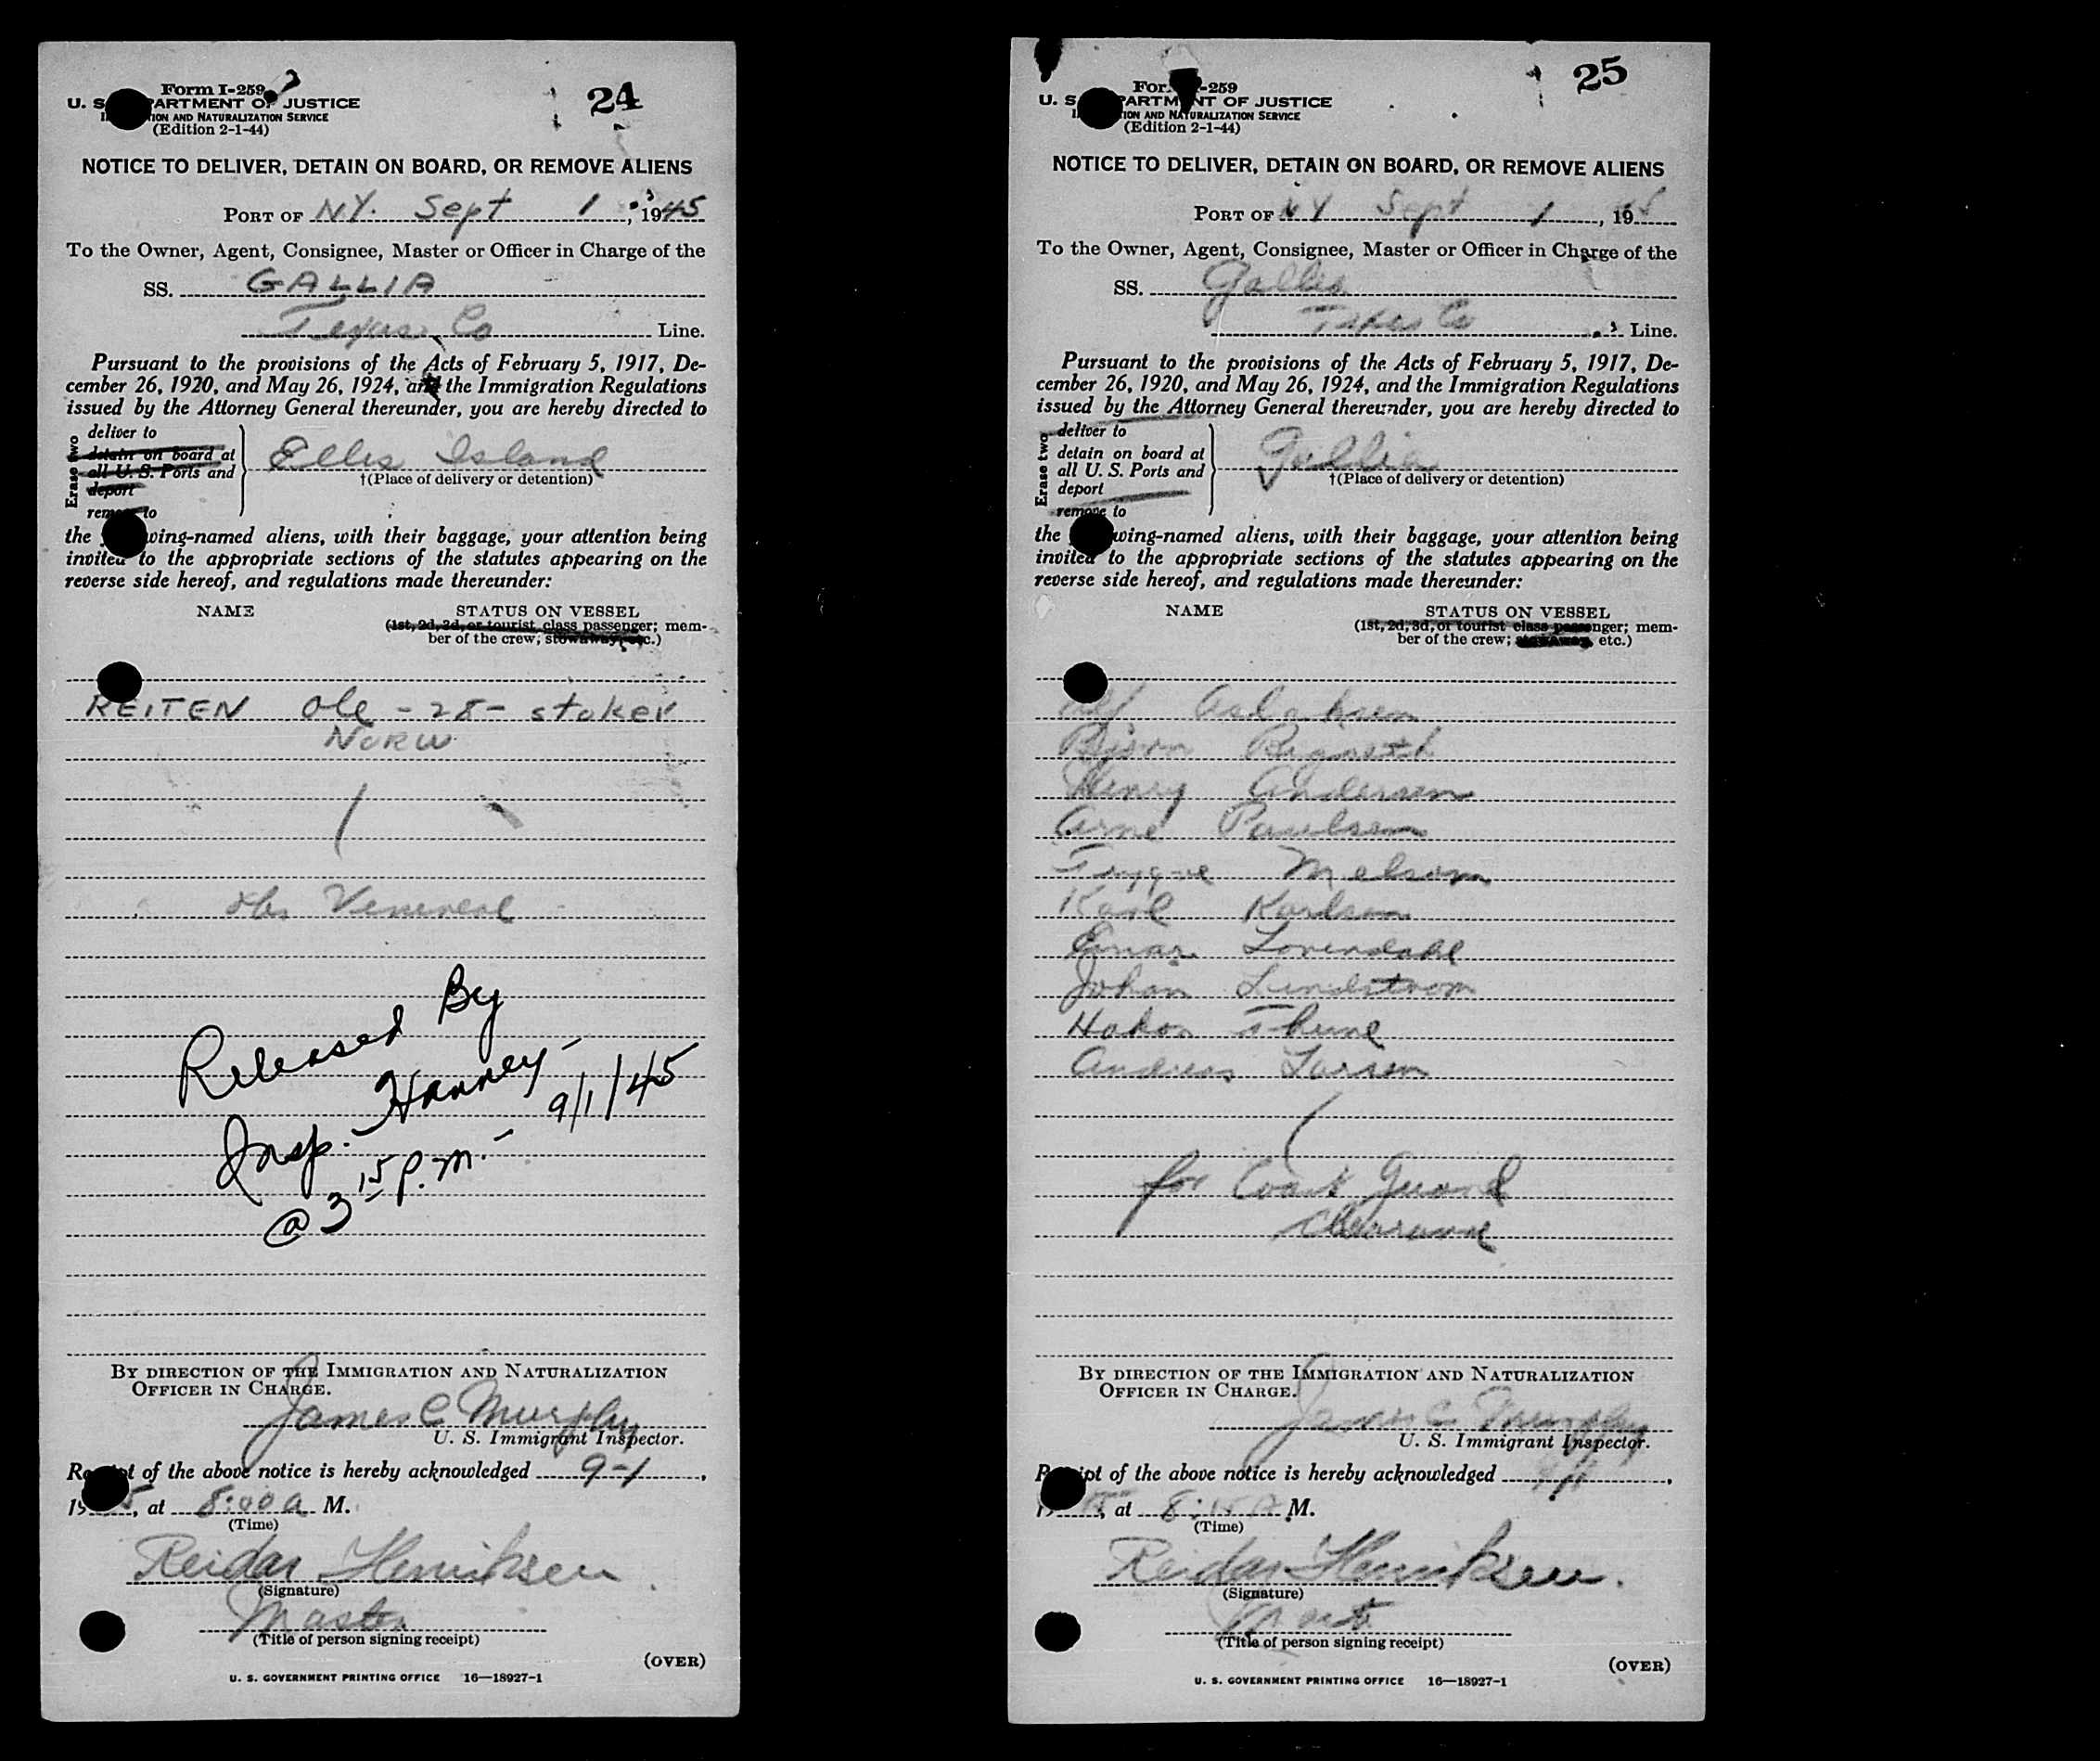 Form I-259
24
U. S. DEPARTMENT OF JUSTICE
IMMIGRATION AND NATURALIZATION SERVICE
(Edition 2-1-44)
NOTICE TO DELIVER, DETAIN ON BOARD, OR REMOVE ALIENS
PORT OF N.Y. Sept 1, 1945
To the Owner, Agent, Consignee, Master or Officer in Charge of the
SS. GALLIA
Texas Co Line.
Pursuant to the provisions of the Acts of February 5, 1917, De-
cember 26, 1920, and May 26, 1924, and the Immigration Regulations
issued by the Attorney General thereunder, you are hereby directed to
Erase two
deliver to
detain on board at
all U. S. Ports and
deport
remove to
Ellis Island
†(Place of delivery or detention)
the following-named aliens, with their baggage, your attention being
invited to the appropriate sections of the statutes appearing on the
reverse side hereof, and regulations made thereunder:
NAME STATUS ON VESSEL
(1st, 2d, 3d, or tourist class passenger; mem-
ber of the crew; stowaway, etc.)
REITEN Ole - 28 - stoker
NORW
Venereal
Released By
Insp. Hanney - 9/1/45
@ 3 15 P.M. -
BY DIRECTION OF THE IMMIGRATION AND NATURALIZATION
OFFICER IN CHARGE.
James C Murphy
U. S. Immigrant Inspector.
Receipt of the above notice is hereby acknowledged 9-1,
1945, at 8:00 a M.
(Time)
Reidar Henriksen
(Signature)
Master
(Title of person signing receipt)
(OVER)
U. S. GOVERNMENT PRINTING OFFICE 16—18927-1
Form I-259
25
U. S. DEPARTMENT OF JUSTICE
IMMIGRATION AND NATURALIZATION SERVICE
(Edition 2-1-44)
NOTICE TO DELIVER, DETAIN ON BOARD, OR REMOVE ALIENS
PORT OF NY Sept 1, 1945
To the Owner, Agent, Consignee, Master or Officer in Charge of the
SS. Gallia
Texas Co Line.
Pursuant to the provisions of the Acts of February 5, 1917, De-
cember 26, 1920, and May 26, 1924, and the Immigration Regulations
issued by the Attorney General thereunder, you are hereby directed to
Erase two
deliver to
detain on board at
all U. S. Ports and
deport
remove to
Gallia
†(Place of delivery or detention)
the following-named aliens, with their baggage, your attention being
invited to the appropriate sections of the statutes appearing on the
reverse side hereof, and regulations made thereunder:
NAME STATUS ON VESSEL
(1st, 2d, 3d, or tourist class passenger; mem-
ber of the crew; stowaway, etc.)
Alf Aslaksen
Bjorn
Henry Andersen
Arne Paulsen
Trygve Melsom
Karl Karlsen
Einar Lovendahl
Johan Lindstrom
Hakon Thune
Andreas Larsen
for Coast Guard
Clearance
BY DIRECTION OF THE IMMIGRATION AND NATURALIZATION
OFFICER IN CHARGE.
James C Murphy
U. S. Immigrant Inspector.
Receipt of the above notice is hereby acknowledged 9/1,
1945, at 8:15 A M.
(Time)
Reidar Henriksen.
(Signature)
(Title of person signing receipt)
(OVER)
U. S. GOVERNMENT PRINTING OFFICE 16—18927-1